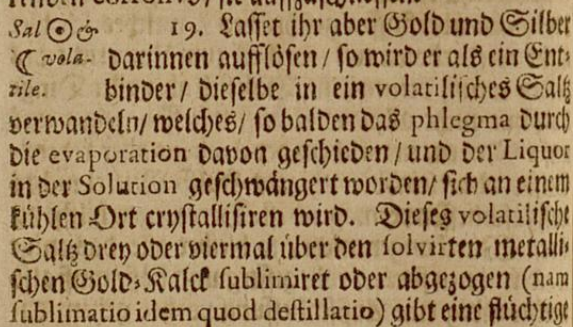 Sal ☉ & 19. Lasset ihr aber Gold und Silber
☾ vola- darinnen aufflösen / so wird er als ein Ent-
tile. binder / dieselbe in ein volatilisches Saltz
verwandeln / welches / so balden das phlegma durch
die evaporation davon geschieden / und der Liquor
in der Solution geschwängert worden / sich an einem
kühlen Ort crystallisiren wird. Dieses volatilische
Saltz drey oder viermal über den solvirten metalli-
schen Gold-Kalck sublimiret oder abgezogen (nam
sublimatio idem quod destillatio) gibt eine flüchtige